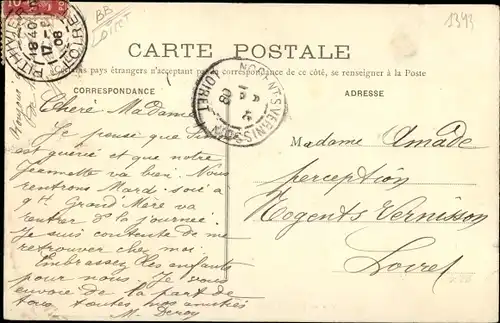 BB
LOIRET
1343
PITHIVIERS
LOIRET
18 40
17 -8
08
CARTE POSTALE
pays étrangers n'acceptant pas la correspondance de ce côté, se renseigner à la Poste
CORRESPONDANCE
ADRESSE
NOGENT-S-VERNISSON
LOIRET
08
Chère Madame
Je pense que
est guérie et que notre
Jeannette va bien. Nous
rentrons Mard. soir à
9h Grand'Mère va
rentrer ds la journée.
Je suis contente de me
retrouver chez moi.
Embrassez les enfants
pour nous. Je vous
envoie de la part de
tous toutes nos amitiés
M. Deroy
Bonjour
Madame Amade
perception
Nogents Vernisson
Loiret